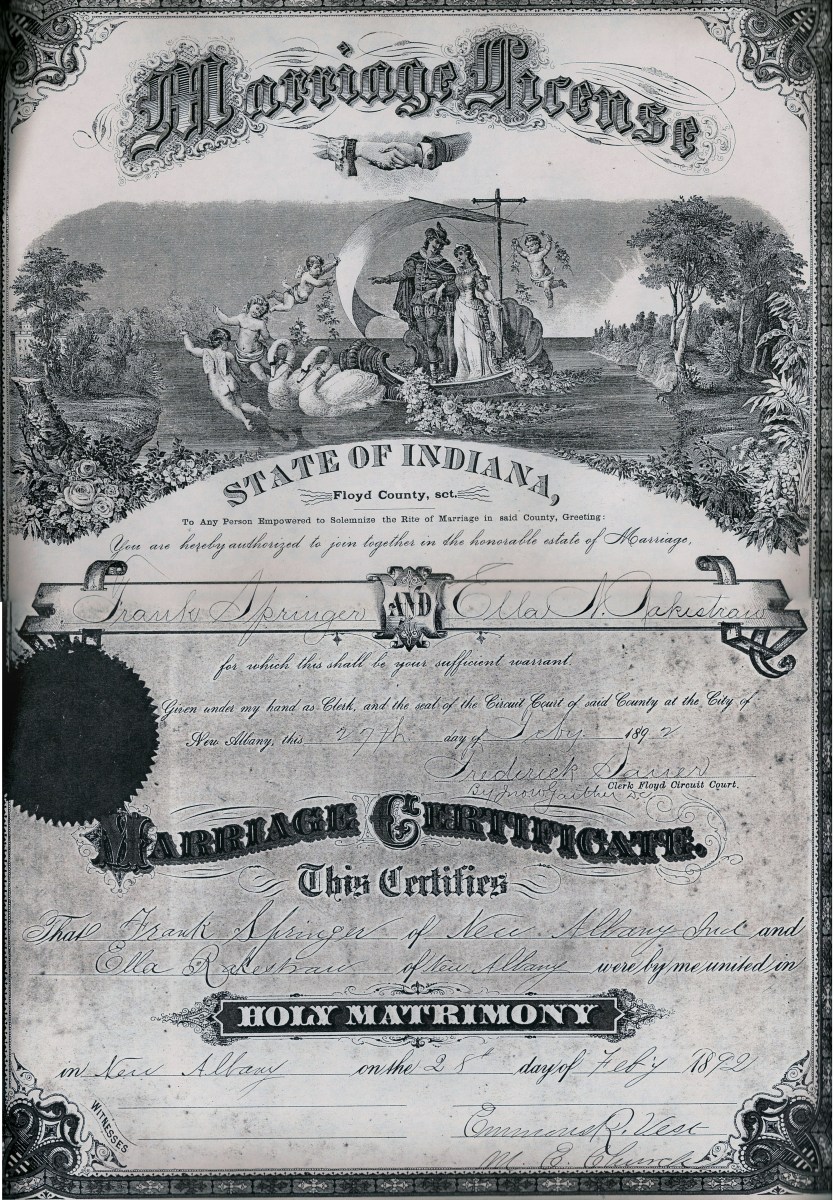 Marriage License
STATE OF INDIANA,
Floyd County, sct.
To Any Person Empowered to Solemnize the Rite of Marriage in said County, Greeting:
You are hereby authorized to join together in the honorable estate of Marriage,
Frank Springer AND Ella N. Rakestraw
for which this shall be your sufficient warrant.
Given under my hand as Clerk, and the seal of the Circuit Court of said County at the City of
New Albany, this 27th day of Feby 1892
Frederick Sauer
Clerk Floyd Circuit Court.
By
MARRIAGE CERTIFICATE.
This Certifies
That Frank Springer of New Albany Ind and
Ella Rakestraw of New Albany were by me united in
HOLY MATRIMONY
in New Albany on the 28th day of Feb'y 1892
WITNESSES
Emmons R. Vest
M. E. Church